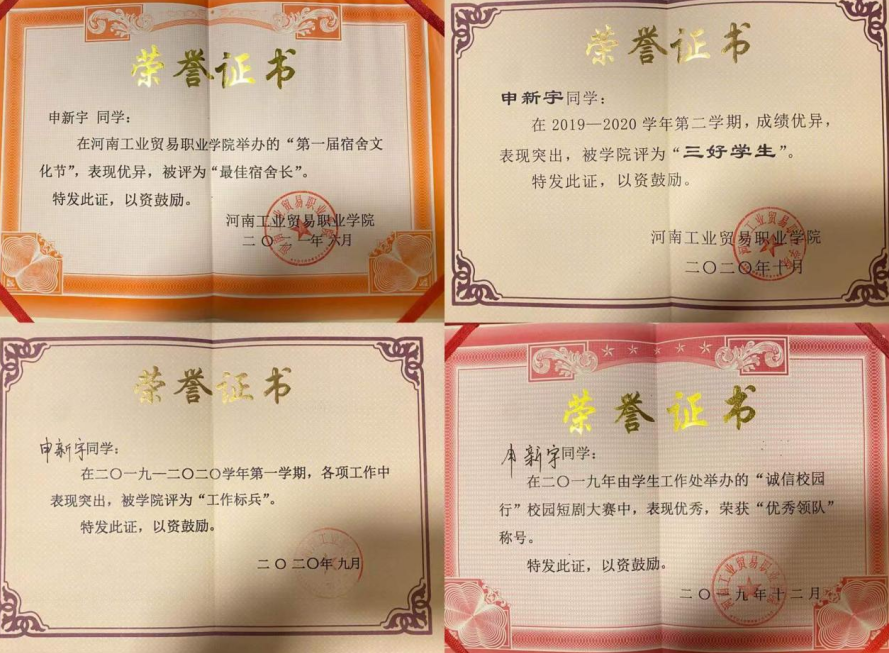 荣誉证书
申新宇 同学：
在河南工业贸易职业学院举办的“第一届宿舍文
化节”，表现优异，被评为“最佳宿舍长”。
特发此证，以资鼓励。
河南工业贸易职业学院
六月
荣誉证书
申新宇同学：
在2019—2020学年第二学期，成绩优异，
表现突出，被学院评为“三好学生”。
特发此证，以资鼓励。
河南工业贸易职业学院
二〇二〇年十月
荣誉证书
申新宇同学：
在二〇一九—二〇二〇学年第一学期，各项工作中
表现突出，被学院评为“工作标兵”。
特发此证，以资鼓励。
二〇二〇年九月
荣誉证书
申新宇同学：
在二〇一九年由学生工作处举办的“诚信校园
行”校园短剧大赛中，表现优秀，荣获“优秀领队”
称号。
特发此证，以资鼓励。
二〇一九年十二月